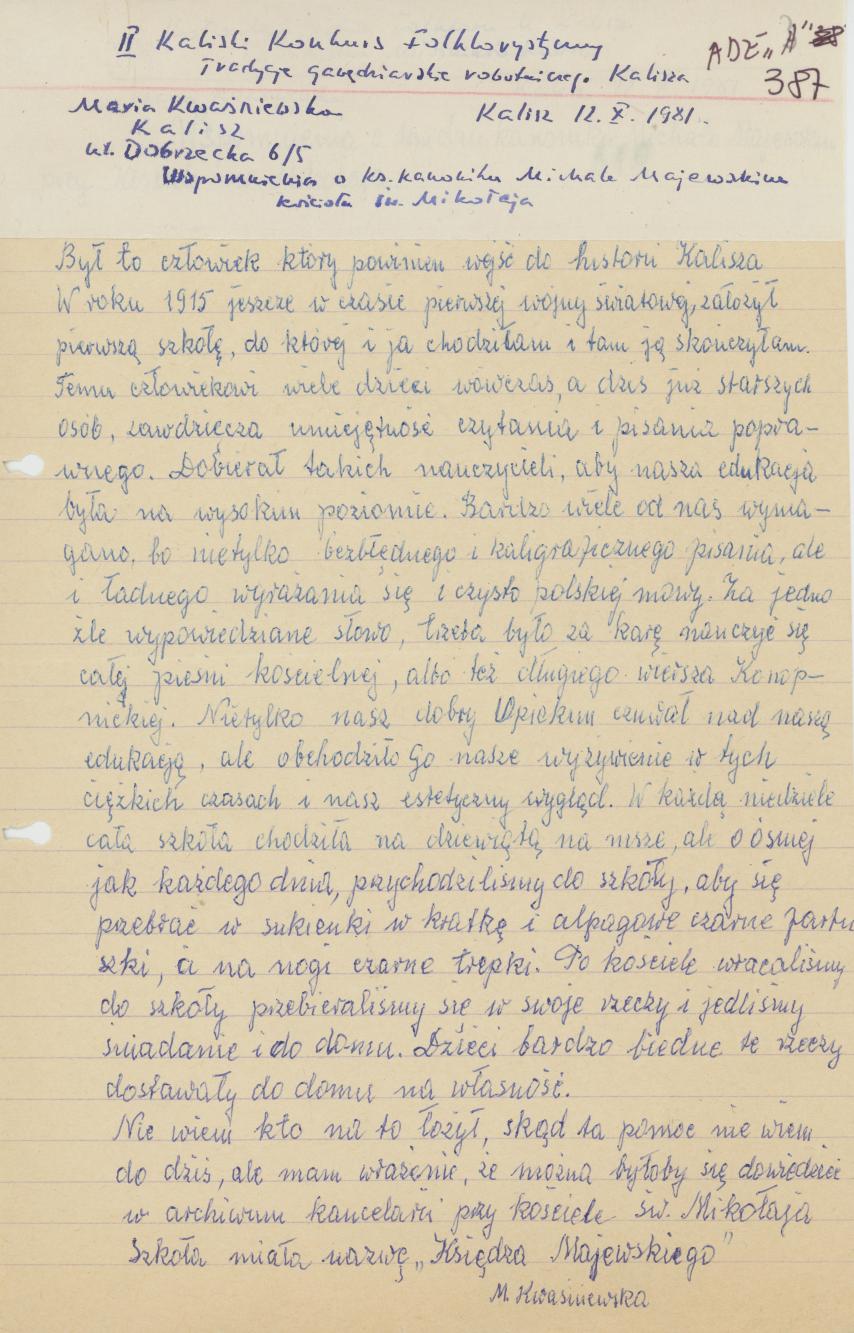 II Kaliski Konkurs Folklorystyczny
Tradycje gawędziarskie robotniczego Kalisza
ADE „A”
387
Maria Kwaśniewska
Kalisz 12.X.1981.
Kalisz
ul. Dobrzecka 6/5
Wspomnienia o ks. kanoniku Michale Majewskim
kościoła św. Mikołaja
Był to człowiek który powinien wejść do historii Kalisza
W roku 1915 jeszcze w czasie pierwszej wojny światowej, założył
pierwszą szkołę, do której i ja chodziłam i tam ją skończyłam.
Temu człowiekowi wiele dzieci wówczas, a dziś już starszych
osób, zawdzięcza umiejętność czytania i pisania popra-
wnego. Dobierał takich nauczycieli, aby nasza edukacja
była na wysokim poziomie. Bardzo wiele od nas wyma-
gano, bo nietylko bezbłędnego i kaligraficznego pisania, ale
i ładnego wyrażania się i czysto polskiej mowy. Za jedno
źle wypowiedziane słowo, trzeba było za karę nauczyć się
całej pieśni kościelnej, albo też długiego wiersza Konop-
nickiej. Nietylko nasz dobry Opiekun czuwał nad naszą
edukacją, ale obchodziło Go nasze wyżywienie w tych
ciężkich czasach i nasz estetyczny wygląd. W każdą niedziele
cała szkoła chodziła na dziewiątą na msze, ale o ósmej
jak każdego dnia, przychodziliśmy do szkoły, aby się
przebrać w sukienki w kratkę i alpagowe czarne fartu
szki, a na nogi czarne trepki. Po kościele wracaliśmy
do szkoły przebieraliśmy się w swoje rzeczy i jedliśmy
śniadanie i do domu. Dzieci bardzo biedne te rzeczy
dostawały do domu na własność.
Nie wiem kto na to łożył, skąd ta pomoc nie wiem
do dziś, ale mam wrażenie, że można byłoby się dowiedzieć
w archiwum kancelarii przy kościele św. Mikołaja
Szkoła miała nazwę „Księdza Majewskiego”
M. Kwaśniewska